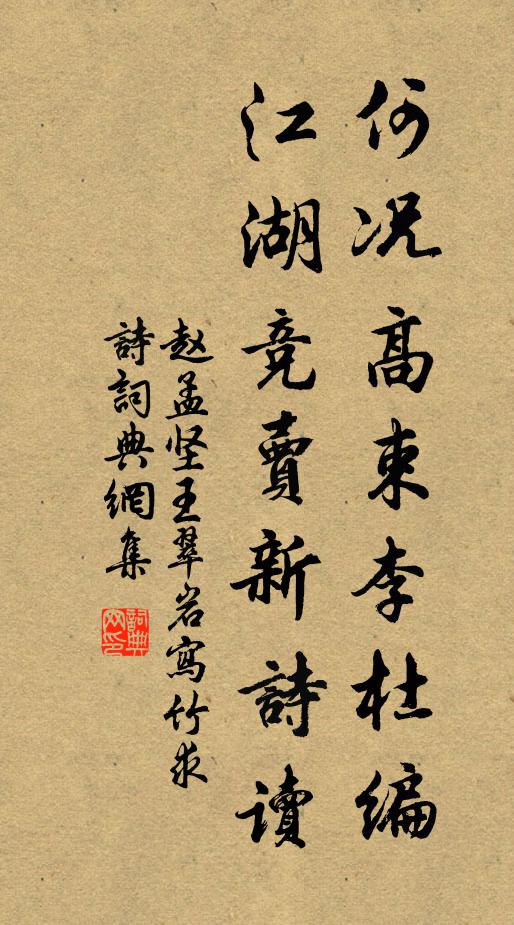 何况高束李杜编
江湖竞賣新詩读
赵孟坚王翠岩寫竹求
詩詞典網集
詞典网印